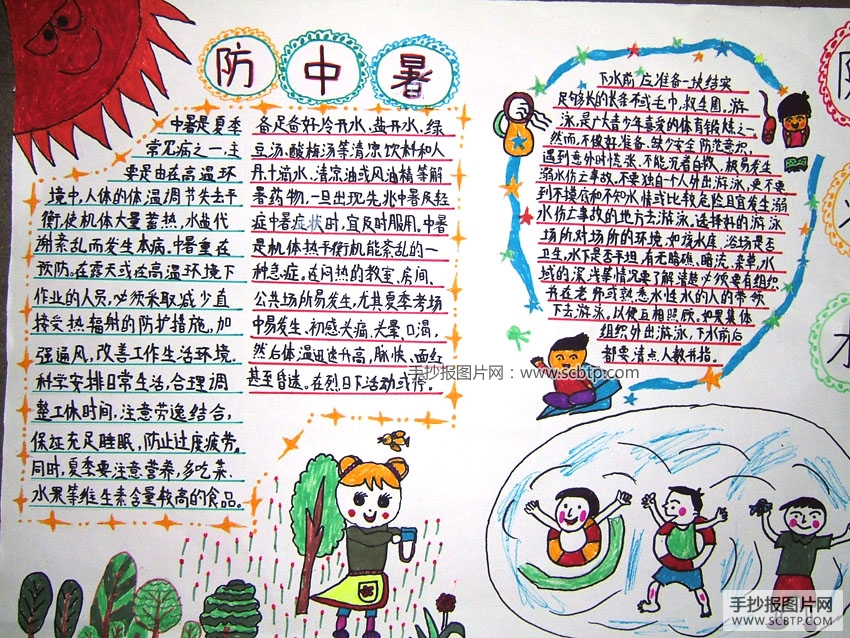 防中暑
中暑是夏季
常见病之一,主
要是由在高温环
境中,人体的体温调节失去平
衡,使机体大量蓄热,水盐代
谢紊乱而发生本病。中暑重在
预防。在露天或在高温环境下
作业的人员,必须采取减少直
接受热辐射的防护措施,加
强通风,改善工作生活环境.
科学安排日常生活,合理调
整工休时间,注意劳逸结合,
保征充足睡眠,防止过度疲劳。
同时,夏季要注意营养,多吃菜.
水果等维生素含量较高的食品。
备足备好冷开水、盐开水、绿
豆汤、酸梅汤等清凉饮料和人
丹十滴水、清凉油或风油精等解
暑药物,一旦出现先兆中暑及轻
症中暑症状时,宜及时服用。中暑
是机体热平衡机能紊乱的一
种急症。在闷热的教室、房间、
公共场所易发生,尤其夏季考场
中易发生、初感头痛、头晕、口渴,
然后体温迅速升高,脉快、面红
甚至昏迷。在烈日下活动或
下水前应准备一块结实
足够长的长条布或毛巾,救生圈,游
泳,是广大青少年喜爱的体育锻炼之一
然而,不做好准备、缺少安全防范意识,
遇到意外时慌张、不能沉着自救、极易发生
溺水伤亡事故,不要独自个人外出游泳,更不要
到不摸底和不知水情或比较危险且宜发生溺
水伤亡事故的地方去游泳,选择好的游泳
场所,对场所的环境,如该水库、浴场是否
卫生,水下是否平坦,有无暗礁、暗流、杂草,水
域的深浅等情况要了解清楚,必须要有组织
并在老师或熟悉水性水的人的带领
下去游泳。以便互相照顾。如果集体
组织外出游泳,下水前后
都要清点人数并指。
手抄报图片网:www.scbtp.com
水
手抄报图片网
WWW.SCBTP.COM